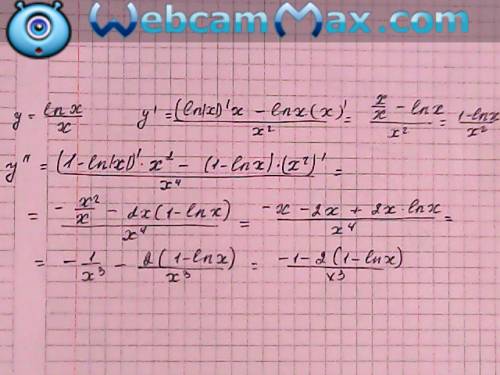 WebcamMax.com
y = ln x / x    y' = ((ln|x|)' x − ln x (x)') / x² = (x/x − ln x) / x² = (1−ln x) / x²
y'' = ((1−ln|x|)' · x² − (1−ln x) · (x²)') / x⁴ =
= (−x²/x − 2x(1−ln x)) / x⁴ = (−x − 2x + 2x · ln x) / x⁴ =
= −1/x³ − 2(1−ln x) / x³ = (−1−2(1−ln x)) / x³